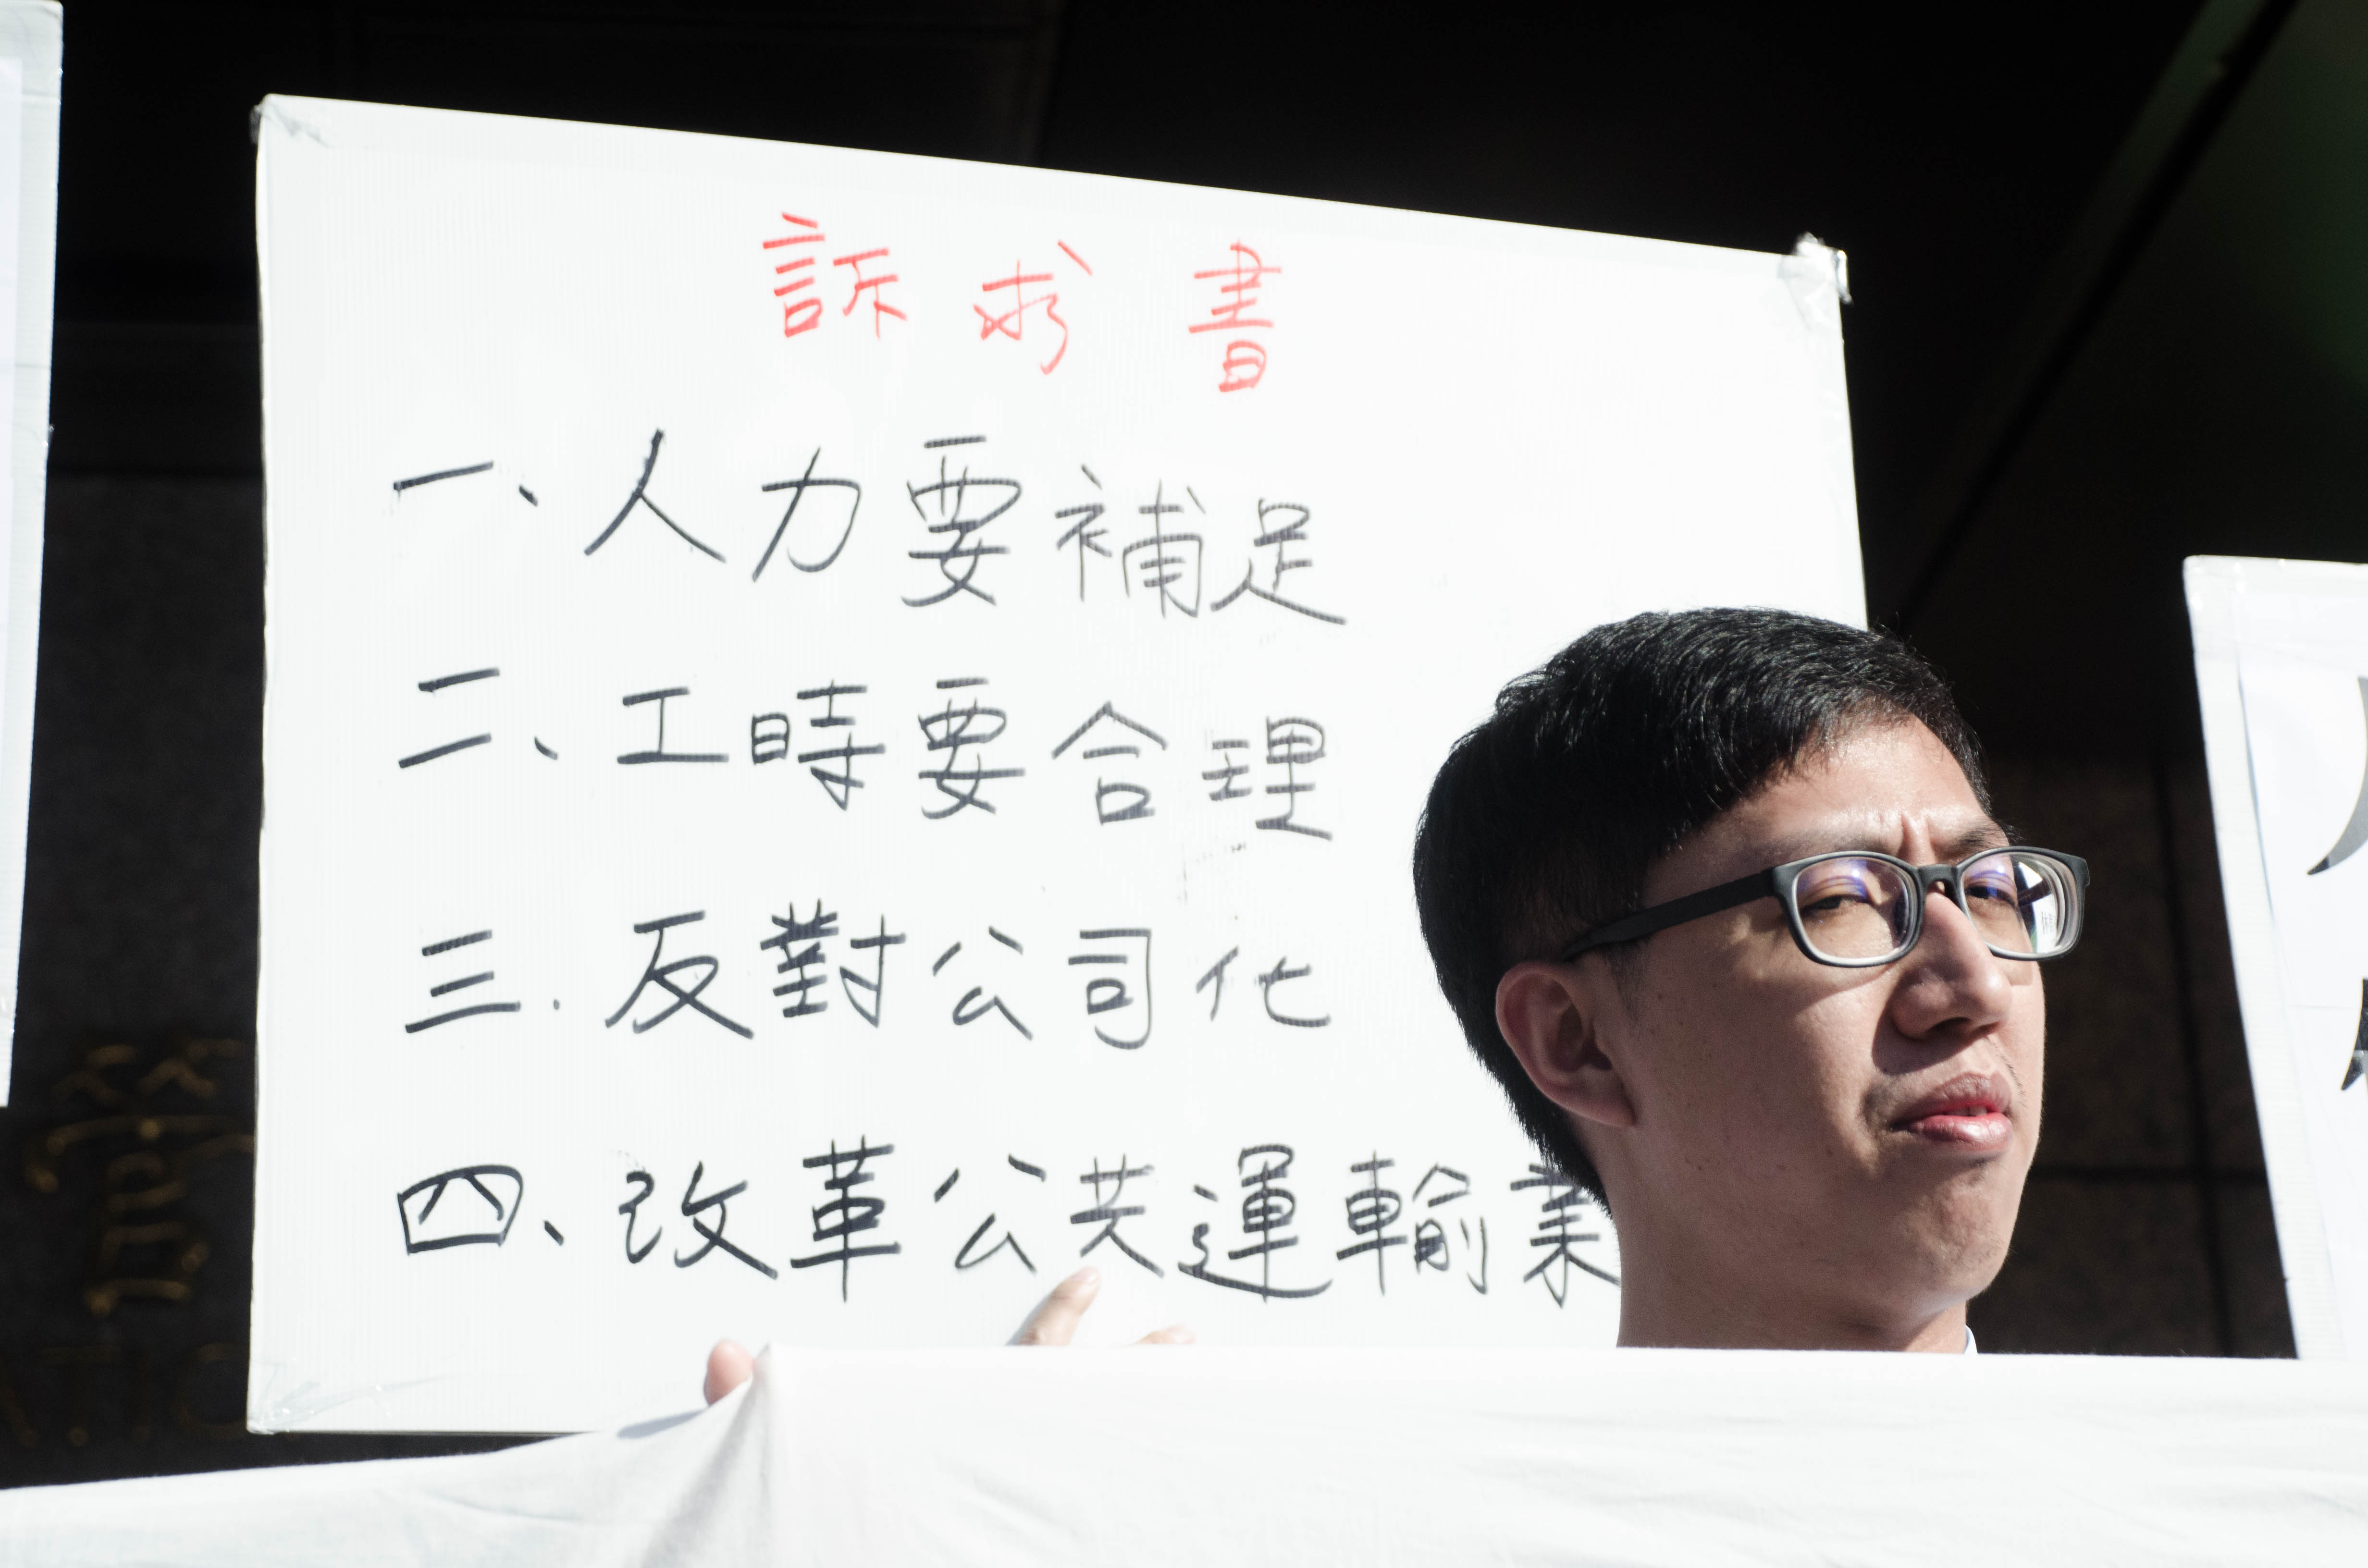 訴求書
一、人力要補足
二、工時要合理
三.反對公司化
四、改革公共運輸業